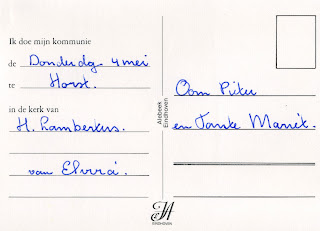 Ik doe mijn kommunie
de Donderdg 4 mei
te Horst.
in de kerk van
H. Lambertus.
van Elvira
Oom Piter
en Tante Mariët.
Alebeek
Eindhoven
EINDHOVEN